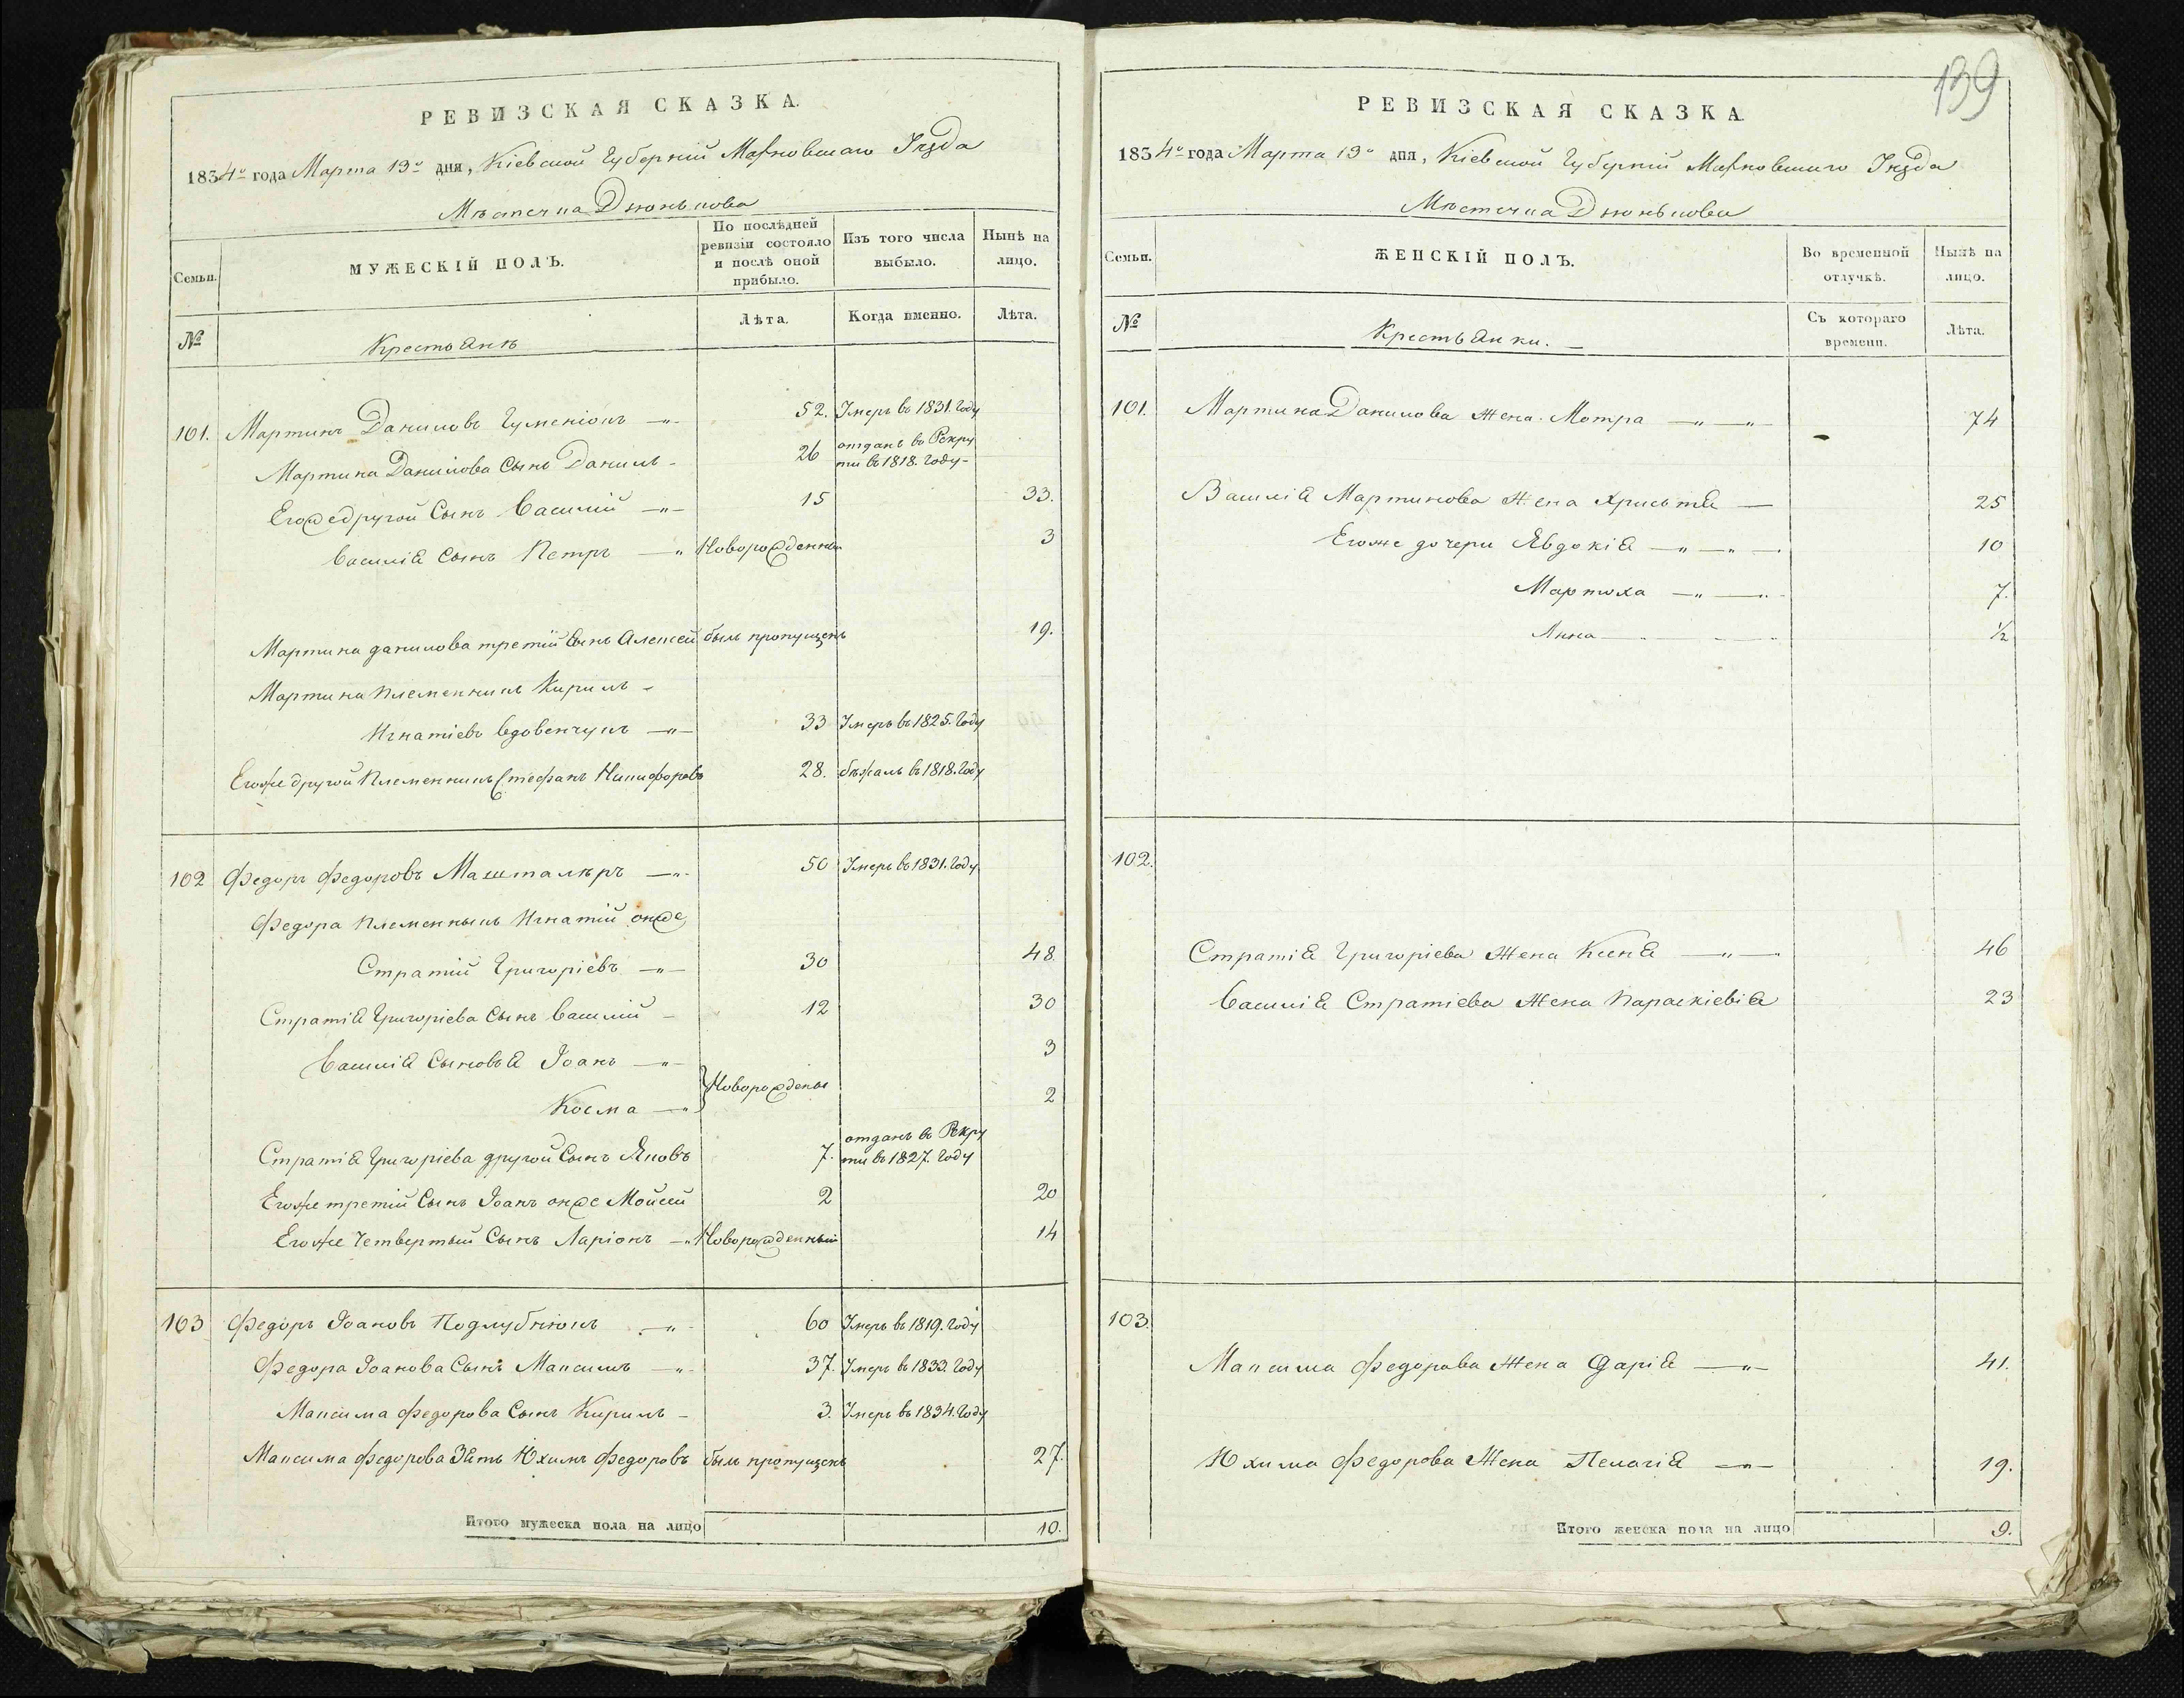 РЕВИЗСКАЯ СКАЗКА.
1834го года Марта 13го дня, Кіевской Губерніи Махновскаго Уѣзда
Мѣстечка Дзюнькова
Семьи.
МУЖЕСКІЙ ПОЛЪ.
По послѣдней ревизіи состояло и послѣ оной прибыло.
Изъ того числа выбыло.
Нынѣ на лицо.
№
Крестьянъ
Лѣта.
Когда именно.
Лѣта.
101. Мартинъ Даниловъ Гуменюкъ 52. Умеръ въ 1831. Году
Мартина Данилова Сынъ Данилъ 26 отданъ въ Рекру
ти въ 1818. Году
Егожедругой Сынъ Василий 15 33.
Василія Сынъ Петръ Новорожденный 3
Мартина данилова третій Сынъ Алексей былъ пропущенъ 19.
Мартина племенникъ Кирилъ
Игнатіевъ вдовенчукъ 33 Умеръ въ 1825. Году
Егоже другой Племенникъ Стефанъ Никифоровъ 28. бѣжалъ въ 1818. Году
102 Федоръ Федоровъ Машталѣръ 50 Умеръ въ 1831. Году
Федора племенныкъ Игнатій онже
Стратій Григоріевъ 30 48
Стратія Григоріева Сынъ Василій 12 30
Василія Сыновья Іоанъ 3
Новорожденые
Косма 2
Стратія Григоріева другой Сынъ Яковъ 7. отданъ въ Рекру
ти въ 1827. Году
Егоже третій Сынъ Іоанъ онже Мойсей 2 20
Егоже Четвертый Сынъ Ларіонъ Новорожденный 14
103 Федоръ Іоановъ Подлубнюкъ 60 Умеръ въ 1819. Году
Федора Іоанова Сынъ Максимъ 37. Умеръ въ 1833. Году
Максима Федорова Сынъ Кирилъ 3. Умеръ въ 1834. Году
Максима Федорова Зять Юхимъ Федоровъ былъ пропущенъ 27.
Итого мужеска пола на лицо 10.
139
РЕВИЗСКАЯ СКАЗКА
1834го года Марта 13го дня, Кіевской Губерніи Махновскаго Уѣзда
Мѣстечка Дзюнькова
Семьи.
ЖЕНСКІЙ ПОЛЪ.
Во временной отлучкѣ.
Нынѣ на лицо.
№
Крестьянки.
Съ котораго времени.
Лѣта.
101. Мартина Данилова Жена Мотра 74
Василія Мартинова Жена Христя 25
Егоже дочери Явдокія 10
Мартоха 7.
Анна 1/2
102.
Стратія Григоріева Жена Ксеня 46
Василія Стратіева Жена Параскіевія 23
103
Максима Федорова Жена Дарія 41.
Юхима Федорова Жена Пелагія 19.
Итого женска пола на лицо 9.